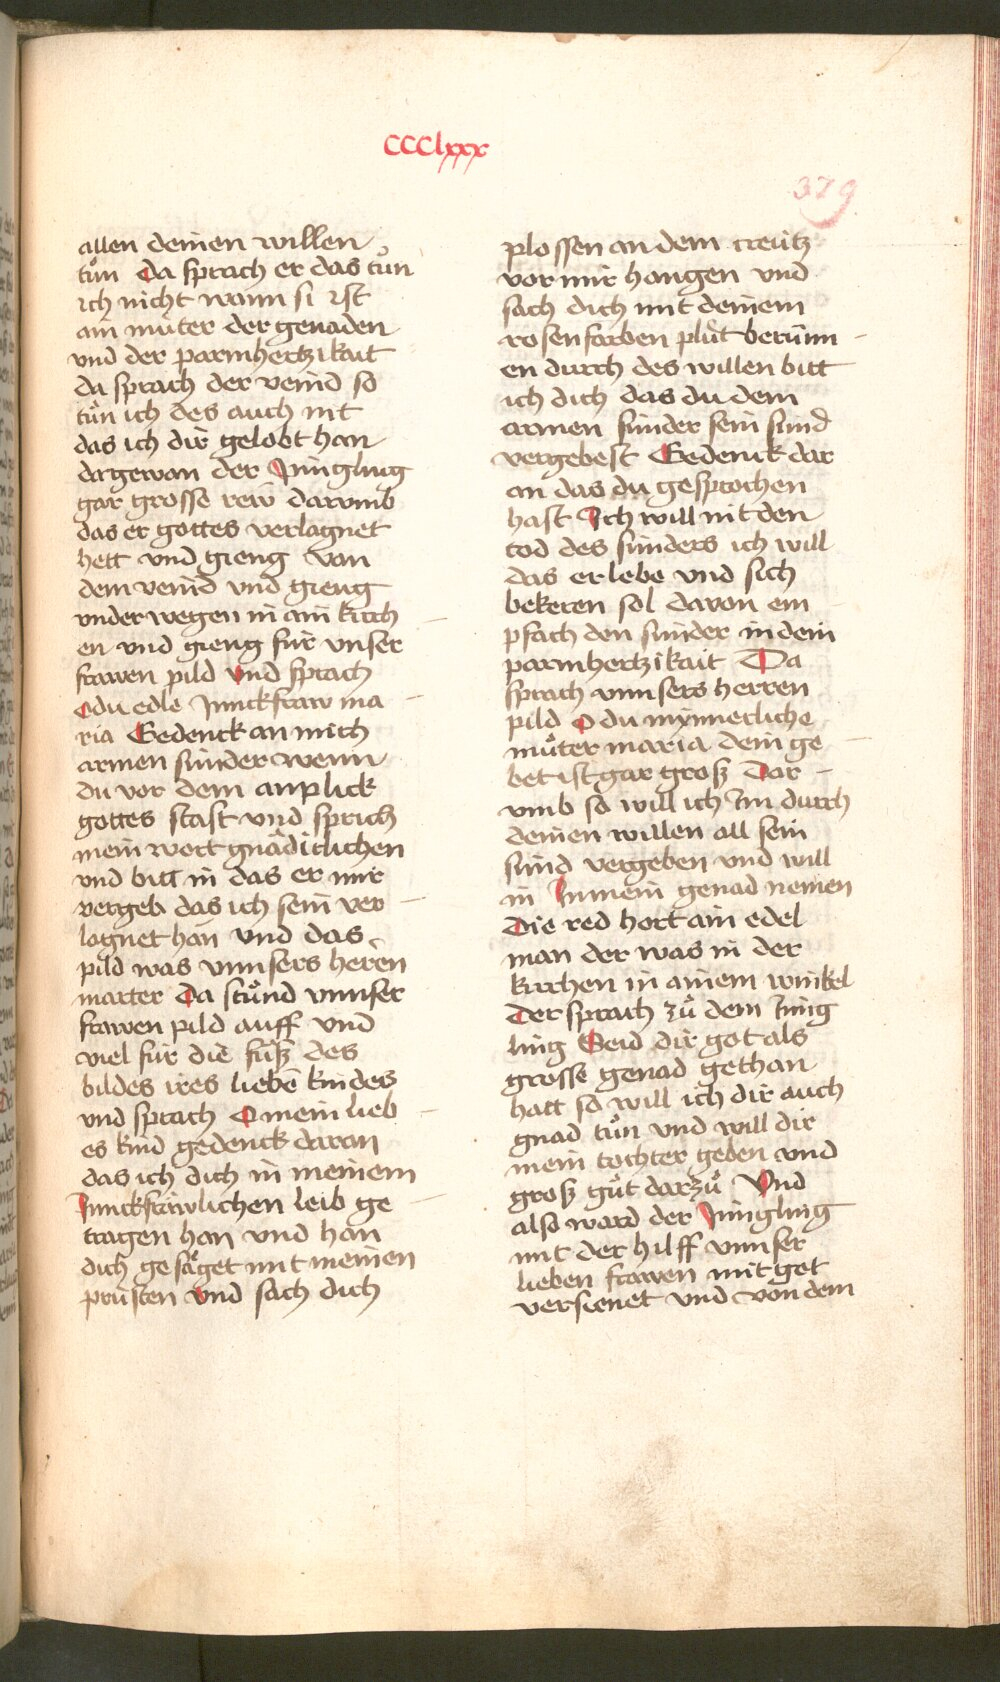 CCClxxx
379
allen deinen willen
tuͦn Da sprach er das tuͦn
ich nicht wann si ist
ain muter der genaden
vnd der parmhertzikait
da sprach der veind so
tuͦn ich des auch nit
das ich dir gelobt han
da gewan der Jüngling
gar grosse rew darvmb
das er gottes verlagnet
hett vnd gieng von
dem veind vnd gieng
vnder wegen in ain kirch
en vnd gieng für vnser
frawen pild vnd sprach
o du edle Junckfraw ma
ria Gedenck an mich
armen sünder wenn
du vor dem anplick
gottes stast vnd sprich
mein wort gnädiclichen
vnd bitt in das er mir
vergeb das ich sein ver
lagnet han vnd das
pild was vnnsers heren
marter Da stuͦnd vnnser
frawen pild auff vnd
viel für die füsz des
bildes ires lieben kindes
vnd sprach O mein lieb
es kind gedenck daran
das ich dich in meinem
Junckfräwlichen leib ge
tragen han vnd han
dich gesäget mit meinen
prüsten vnd sach dich
plossen an dem creütz
vor mir hangen vnd
sach dich mit deinem
rosenfarben plüt berünn
en durch des willen bitt
ich dich das du dem
armen sünder sein sünd
vergebest Gedenck dar
an das du gesprochen
hast Ich will nit den
tod des sünders ich will
das er lebe vnd sich
bekeren sol davon em
pfach den sünder in dein
parmhertzikait Da
sprach vnnsers herren
pild O du mynnecliche
muͦter maria dein ge
bet ist gar grosz Dar
vmb so will ich Im durch
deinen willen all sein
sünd vergeben vnd will
in In mein genad nemen
Die red hort ain edel
man der was in der
kirchen in ainem winkel
Der sprach zuͦ dem Jüng
ling Seid dir got als
grosse genad gethan
hatt so will ich dir auch
gnad tuͦn vnd will dir
mein tochter geben vnd
grosz guͦt darzuͦ Vnd
also ward der Jüngling
mit der hilff vnnser
lieben frawen mit got
versienet vnd von dem